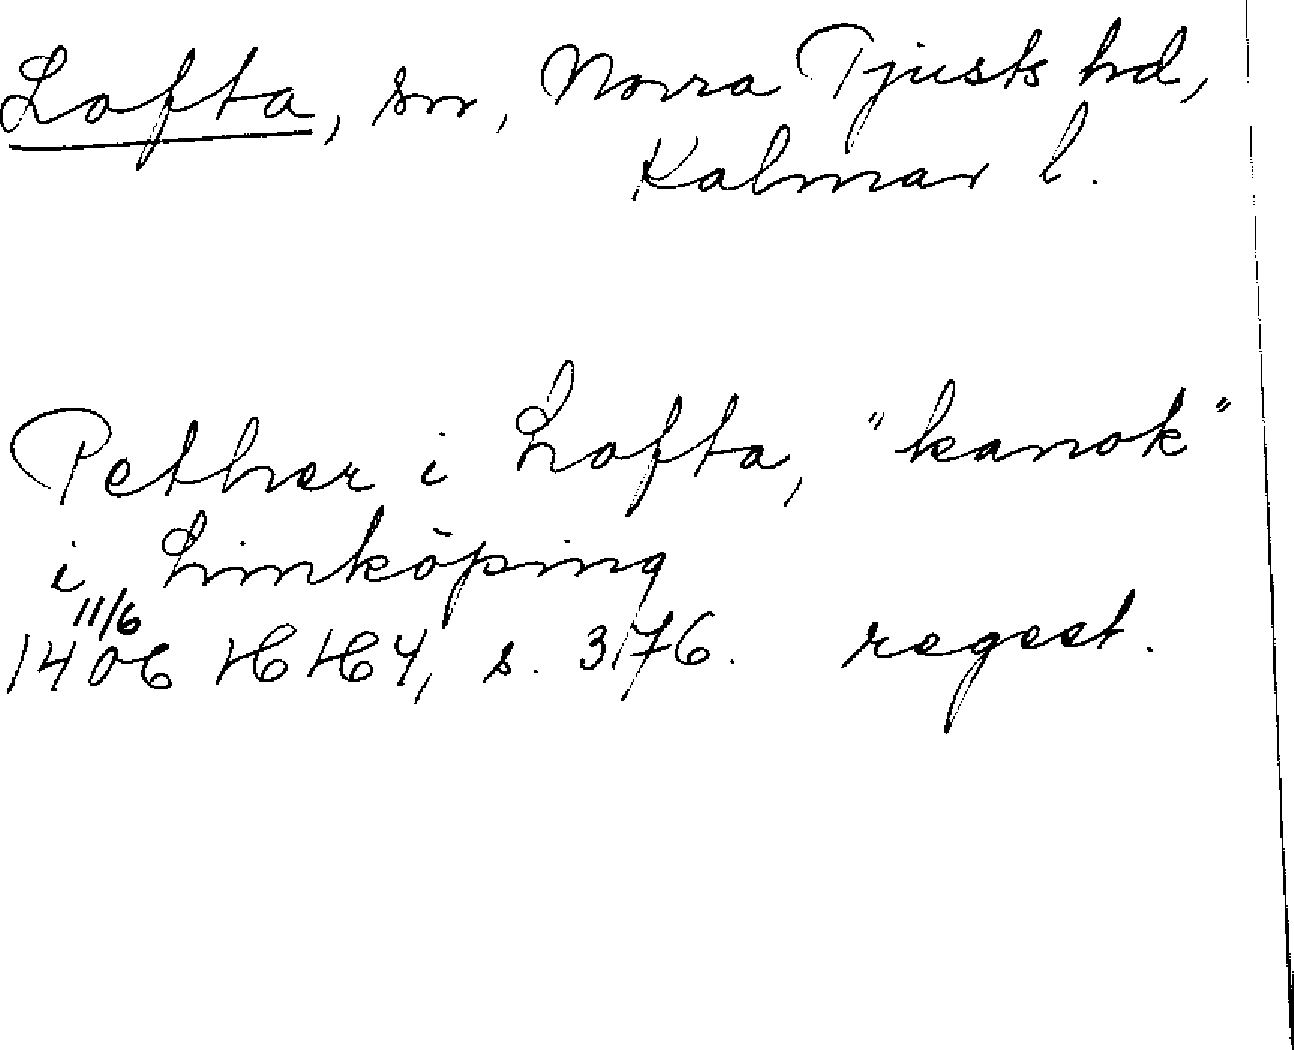 Lofta, sn, Norra Tjusts hd,
Kalmar l.
Pether i Lofta, "kanok"
i Linköping
11/6
1406 HH4, s. 376. regest.